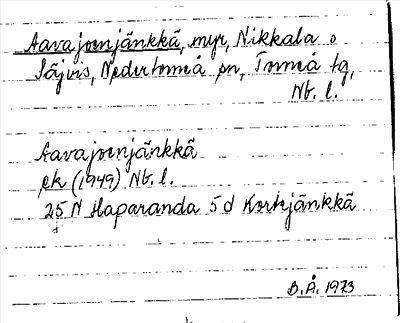 Aavajoenjänkkä, myr, Nikkala o
Säivis, Nedertorneå sn, Torneå tg,
Nb. l.
Aavajoenjänkkä
ek (1949) Nb. l.
25 N Haparanda 5d Korkjänkkä
B.Å. 1973